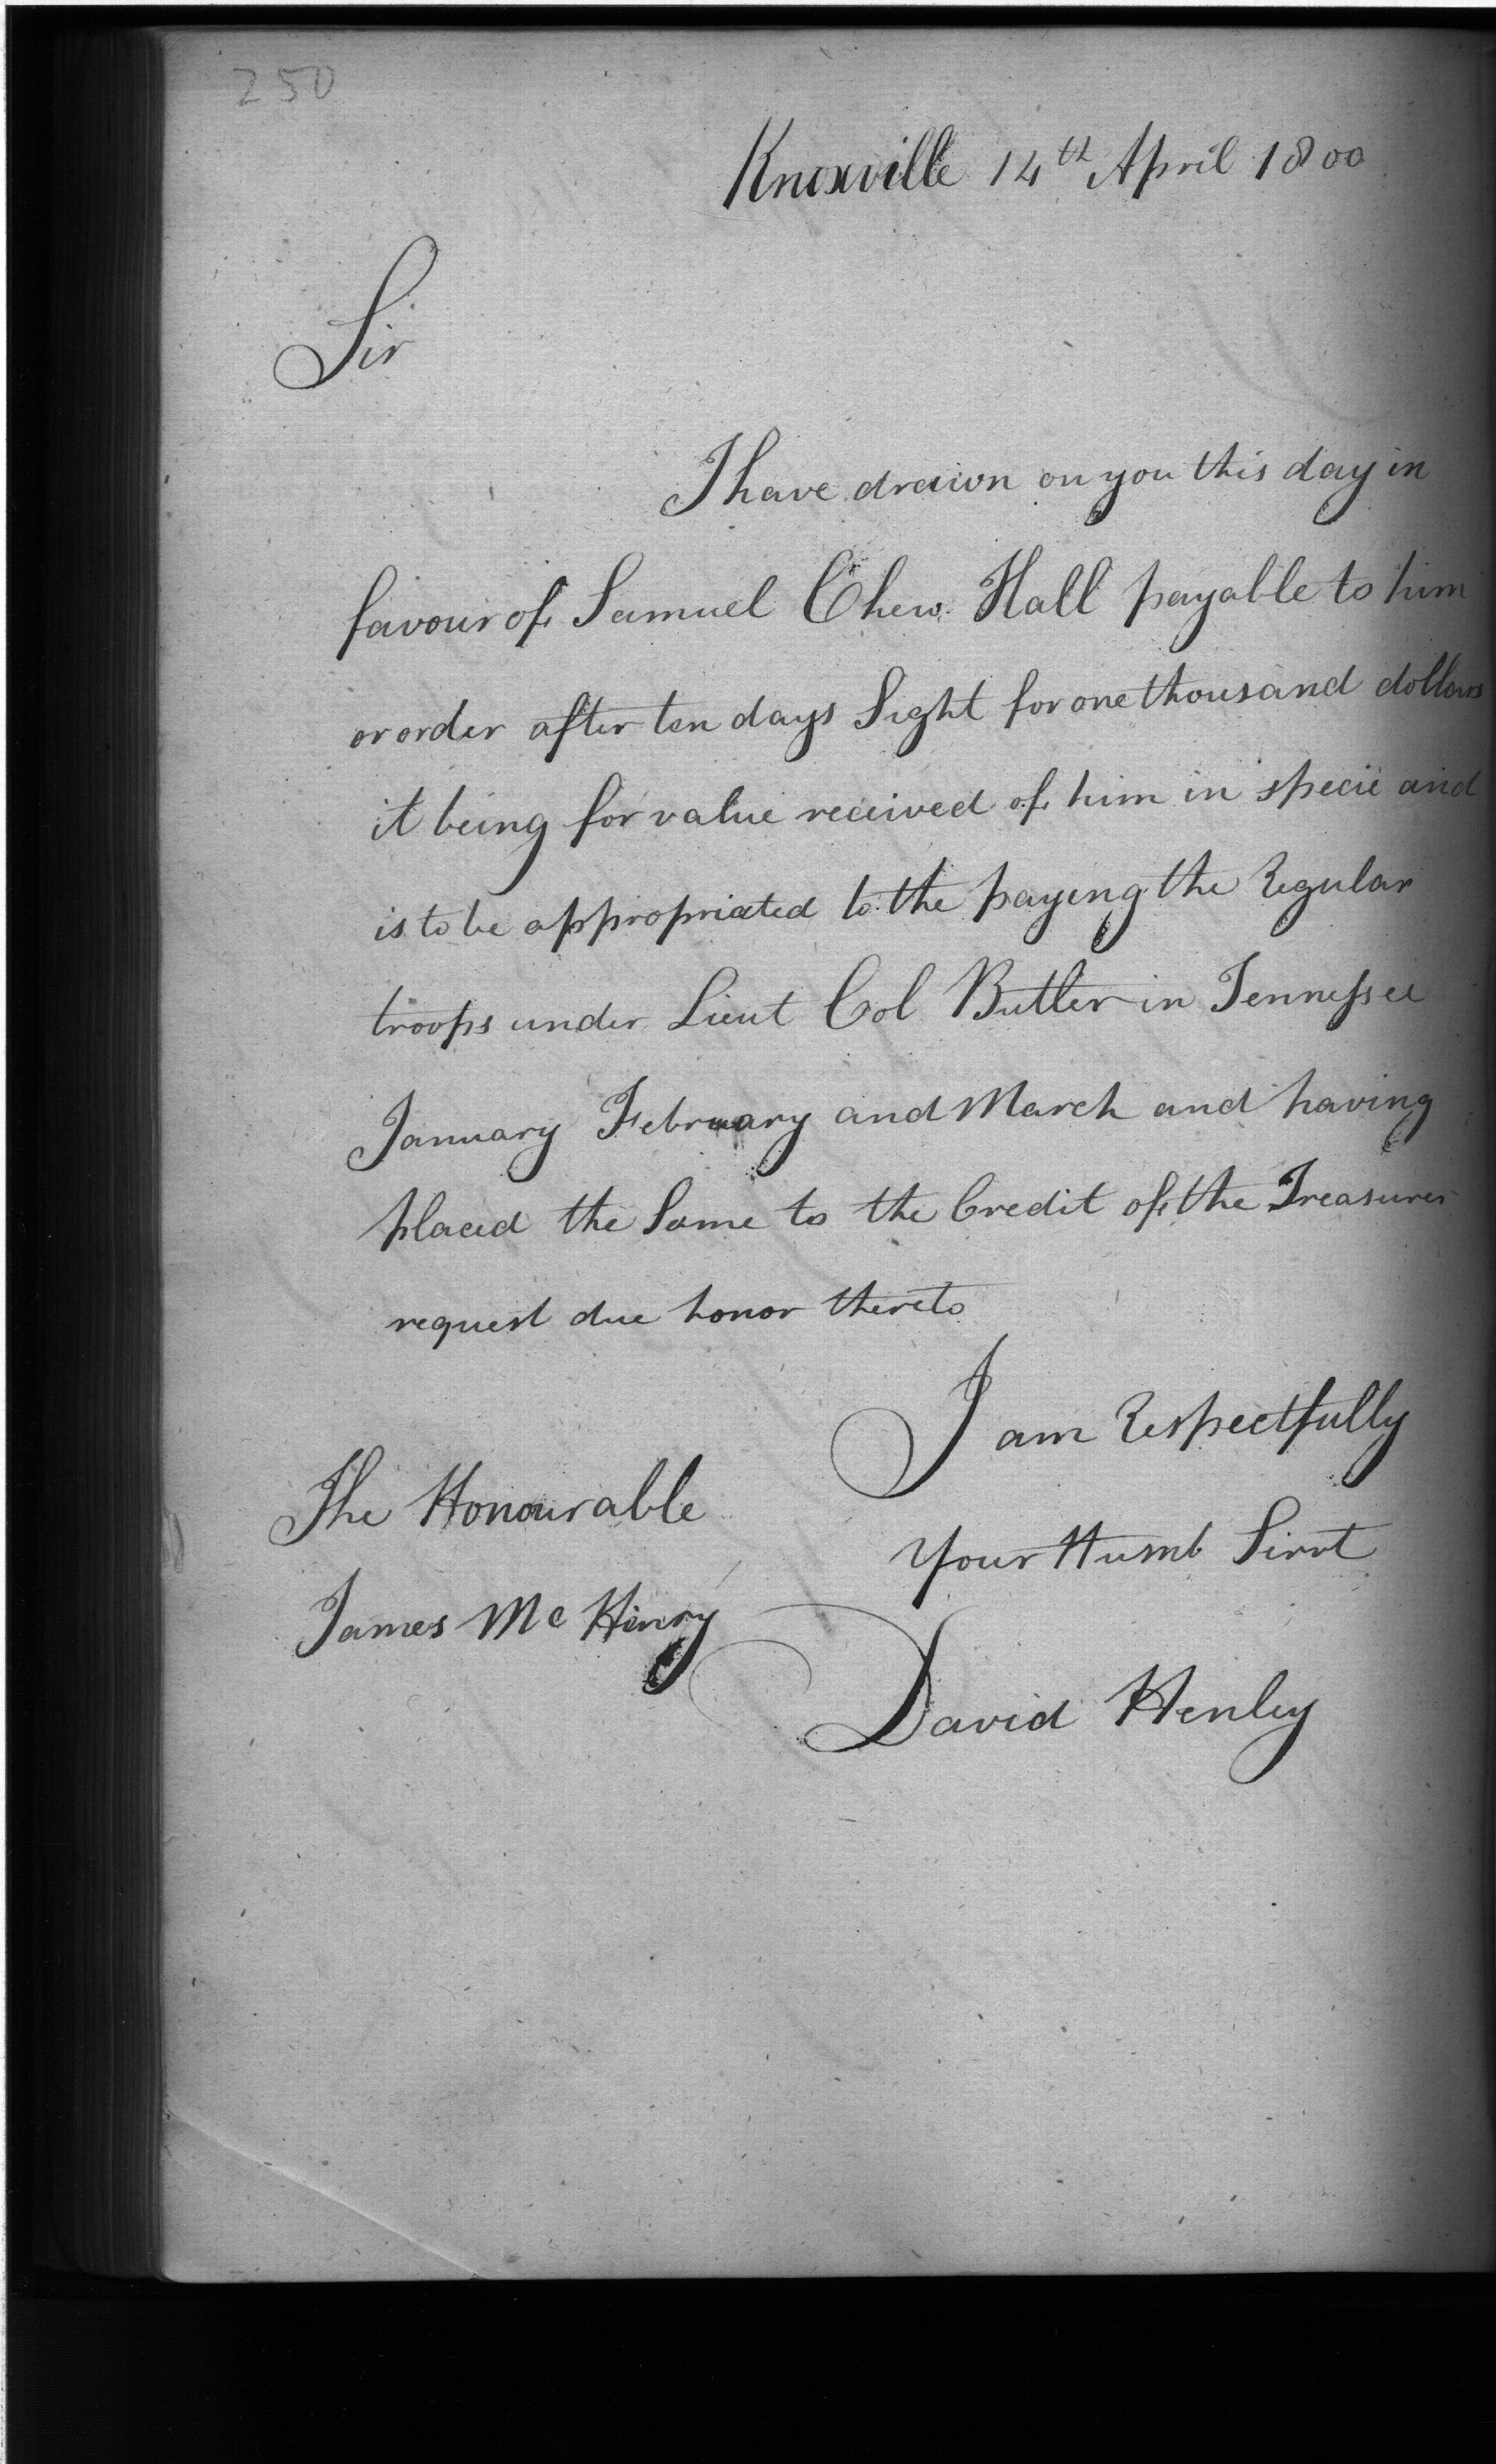 250
Knoxville 14th April 1800
Sir
I have drawn on you this day in
favour of Samuel Chew Hall payable to him
or order after ten days Sight for one thousand dollars
it being for value received of him in specie and
is to be appropriated to the paying the Regular
troops under Lieut Col Butler in Tennessee
January February and March and having
placed the Same to the Credit of the Treasurer
request due honor thereto
I am Respectfully
The Honourable
Your Humb Servt
James Mc Henry
David Henley